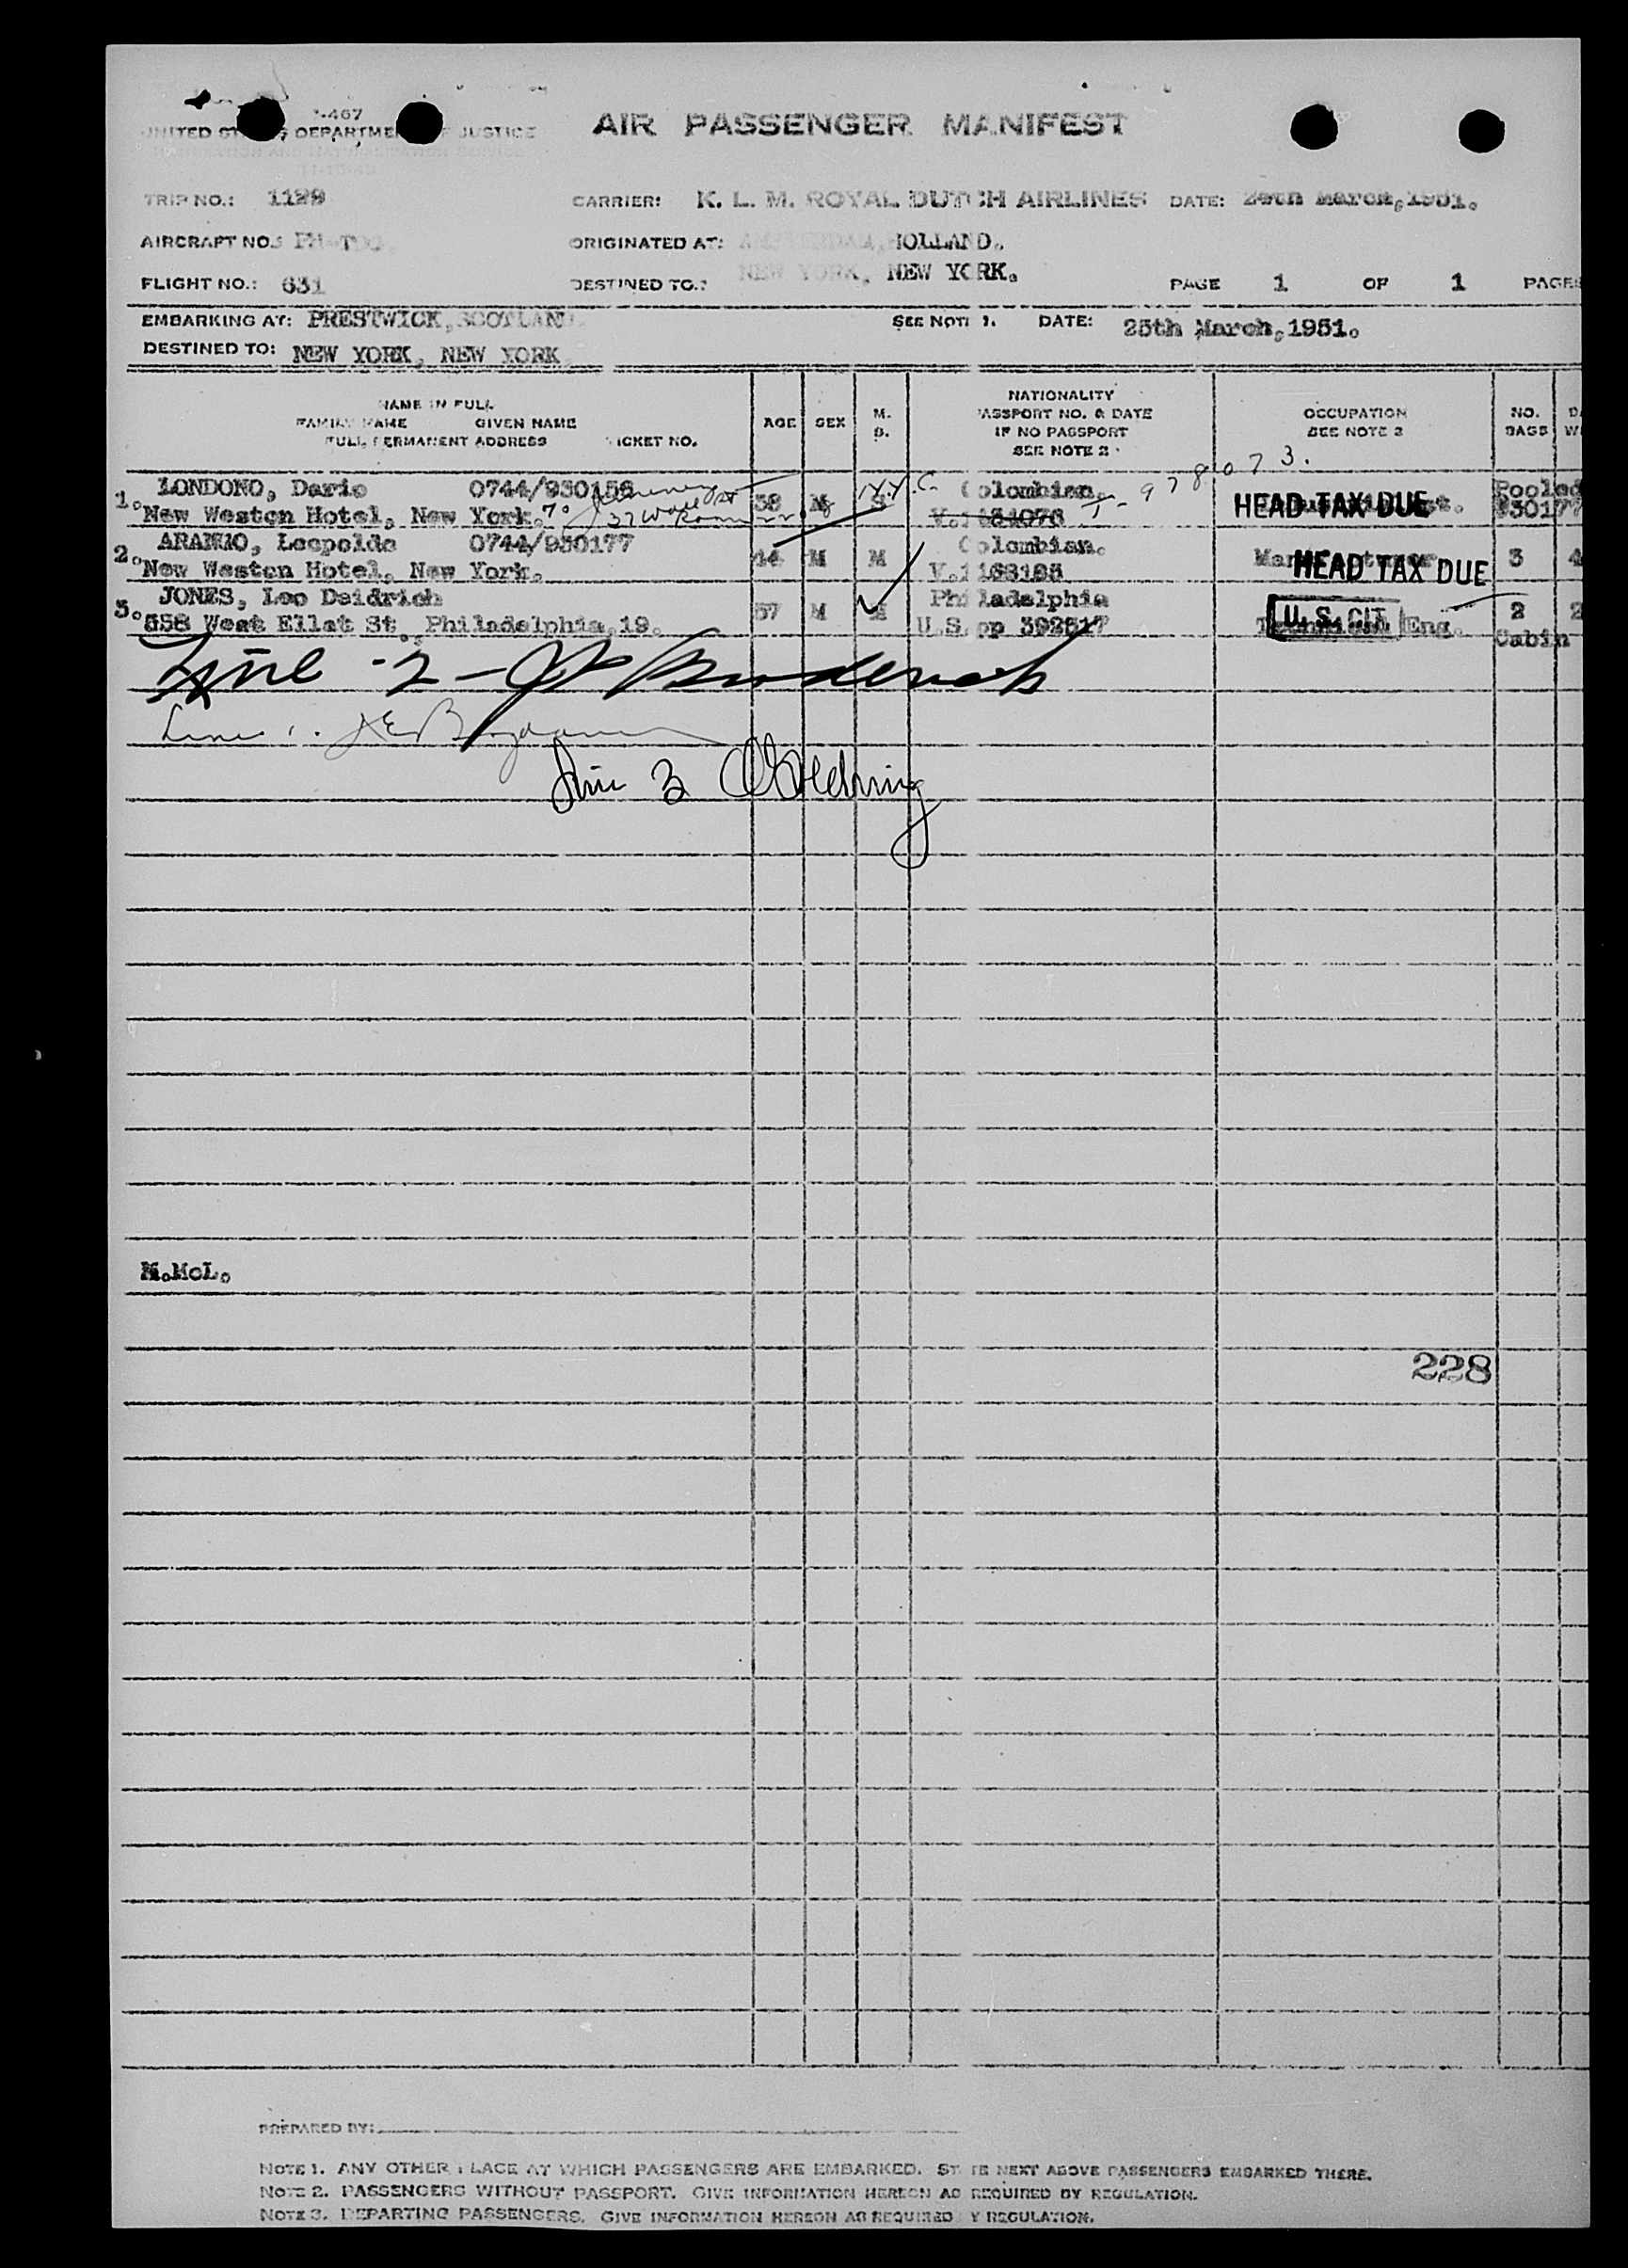 I-467
UNITED STATES DEPARTMENT OF JUSTICE
AIR PASSENGER MANIFEST
TRIP NO.: 1129 CARRIER: K. L. M. ROYAL DUTCH AIRLINES DATE: 24th March, 1951.
AIRCRAFT NO.: ORIGINATED AT: AMSTERDAM, HOLLAND.
FLIGHT NO.: 631 DESTINED TO.: NEW YORK, NEW YORK. PAGE 1 OF 1 PAGES
EMBARKING AT: PRESTWICK, SCOTLAND. SEE NOTE 1. DATE: 25th March, 1951.
DESTINED TO: NEW YORK, NEW YORK
NAME IN FULL
FAMILY NAME GIVEN NAME
FULL PERMANENT ADDRESS TICKET NO.
AGE SEX M. S.
NATIONALITY
PASSPORT NO. & DATE
IF NO PASSPORT
SEE NOTE 2
OCCUPATION
SEE NOTE 2
NO. BAGS
1. LONDONO, Dario 0744/930156 38 M S N.Y.C. Colombian. T-978073. HEAD TAX DUE Pooled
New Weston Hotel, New York. 37 Wall St V. 930177
2. ARANGO, Leopoldo 0744/930177 44 M M Colombian. HEAD TAX DUE 3 4
New Weston Hotel, New York. V.1168185
3. JONES, Leo Deidrich 57 M M Philadelphia U.S. CIT 2 2
558 West Ellet St., Philadelphia, 19. U.S. pp 392517 Technical Eng. Cabin
Line - 2 -
Line 1.
Line 3
M.McL.
228
PREPARED BY:
NOTE 1. ANY OTHER PLACE AT WHICH PASSENGERS ARE EMBARKED. STATE NEXT ABOVE PASSENGERS EMBARKED THERE.
NOTE 2. PASSENGERS WITHOUT PASSPORT. GIVE INFORMATION HEREON AS REQUIRED BY REGULATION.
NOTE 3. DEPARTING PASSENGERS. GIVE INFORMATION HEREON AS REQUIRED BY REGULATION.